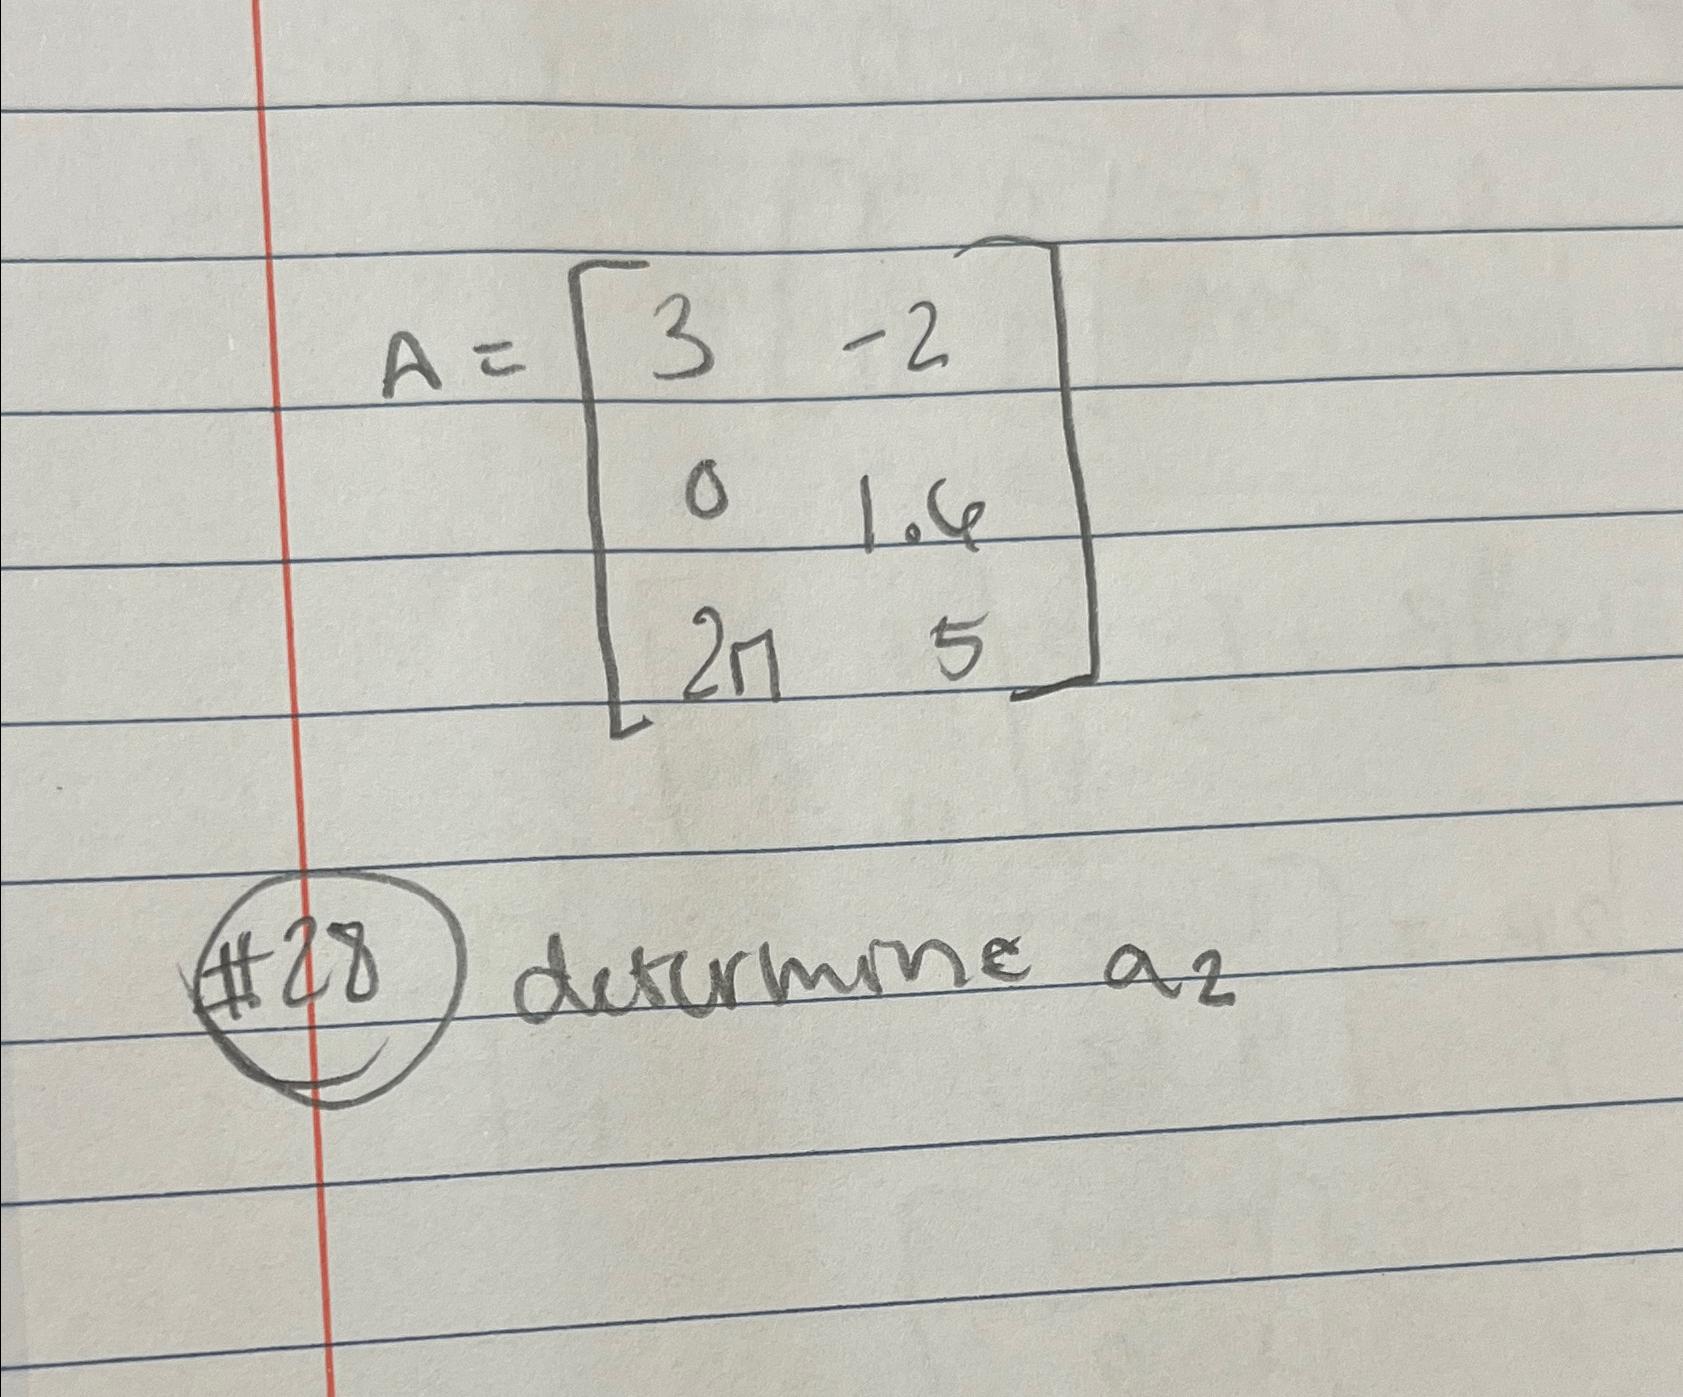 A = [ 3 -2
0 1.6
2π 5 ]
#28 determine a2